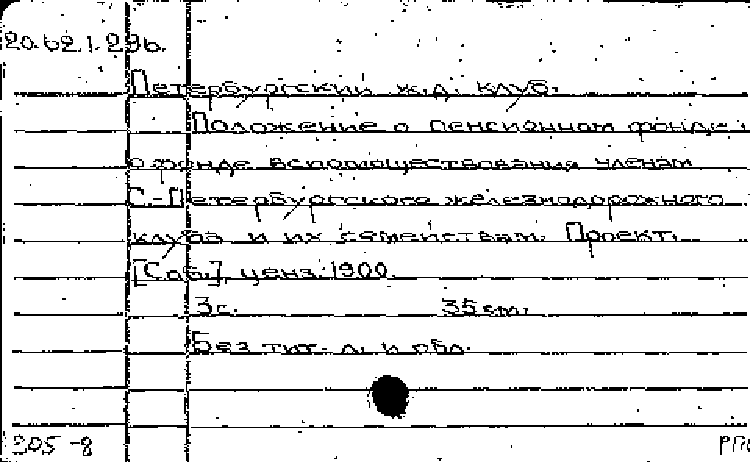 20.62.1.296.
Петербургский ж.д. клуб.
Положение о пенсионном фонде и
о фонде вспомоществования членам
С.-Петербургского железнодорожного
клуба и их семействам. Проект.
[Спб.], ценз. 1900.
3с. 35 см.
Без тит. л. и обл.
205-8